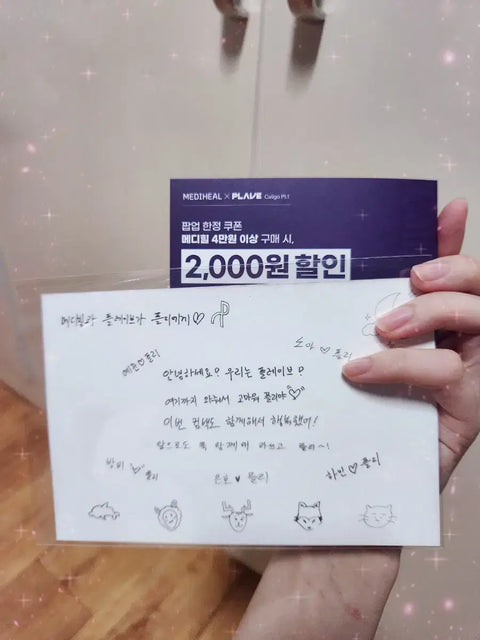 MEDIHEAL × PLAVE Caligo Pt.1
팝업 한정 쿠폰
메디힐 4만원 이상 구매 시,
2,000원 할인
메디힐과 플레이브가 플리에게♡
예준♡플리
노아♡플리
안녕하세요? 우리는 플레이브?
여기까지 와줘서 고마워 플리야♡
이번 컴백도 함께해서 행복했어!
앞으로도 쭉 함께해 플리~!
밤비♡플리
은호♥플리
하민♡플리